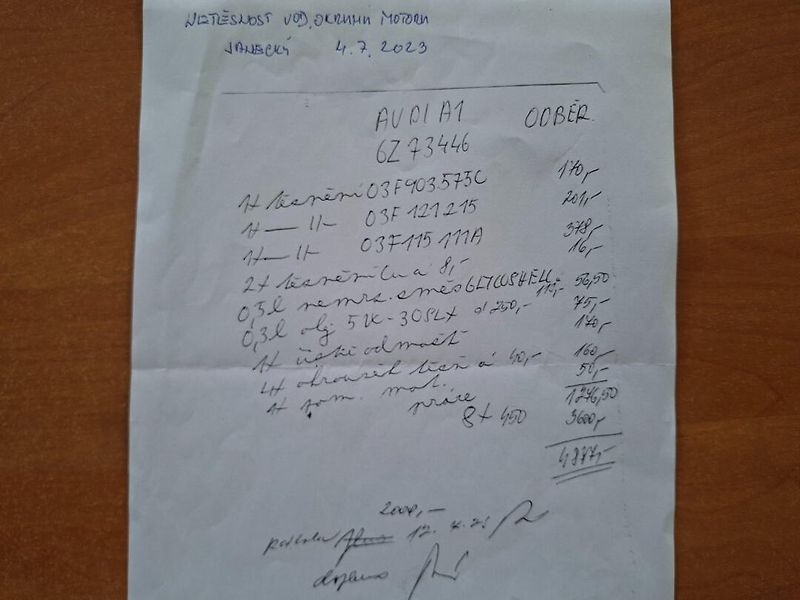 NETĚSNOST VOD. OKRUHU MOTORU
JANECKÝ 4.7.2023
AUDI A1 ODBĚR.
6Z73446
1x těsnění 03F903575C 170,-
1x —||— 03F 121 215 201,-
1x —||— 03F 115 111A 378,-
2x těsnění Cu á 8,- 16,-
0,5l nemrz. směs GLYCOSHELL á 113,- 56,50
0,3l olej 5W-30 SLX á 250,- 75,-
1x čisticí odmašť 170,-
4x ohrouseh těsn á 40,- 160,-
1x pom. mat. 50,-
1276,50
práce
8x 450 3600,-
4877,-
2000,-
12.7.23